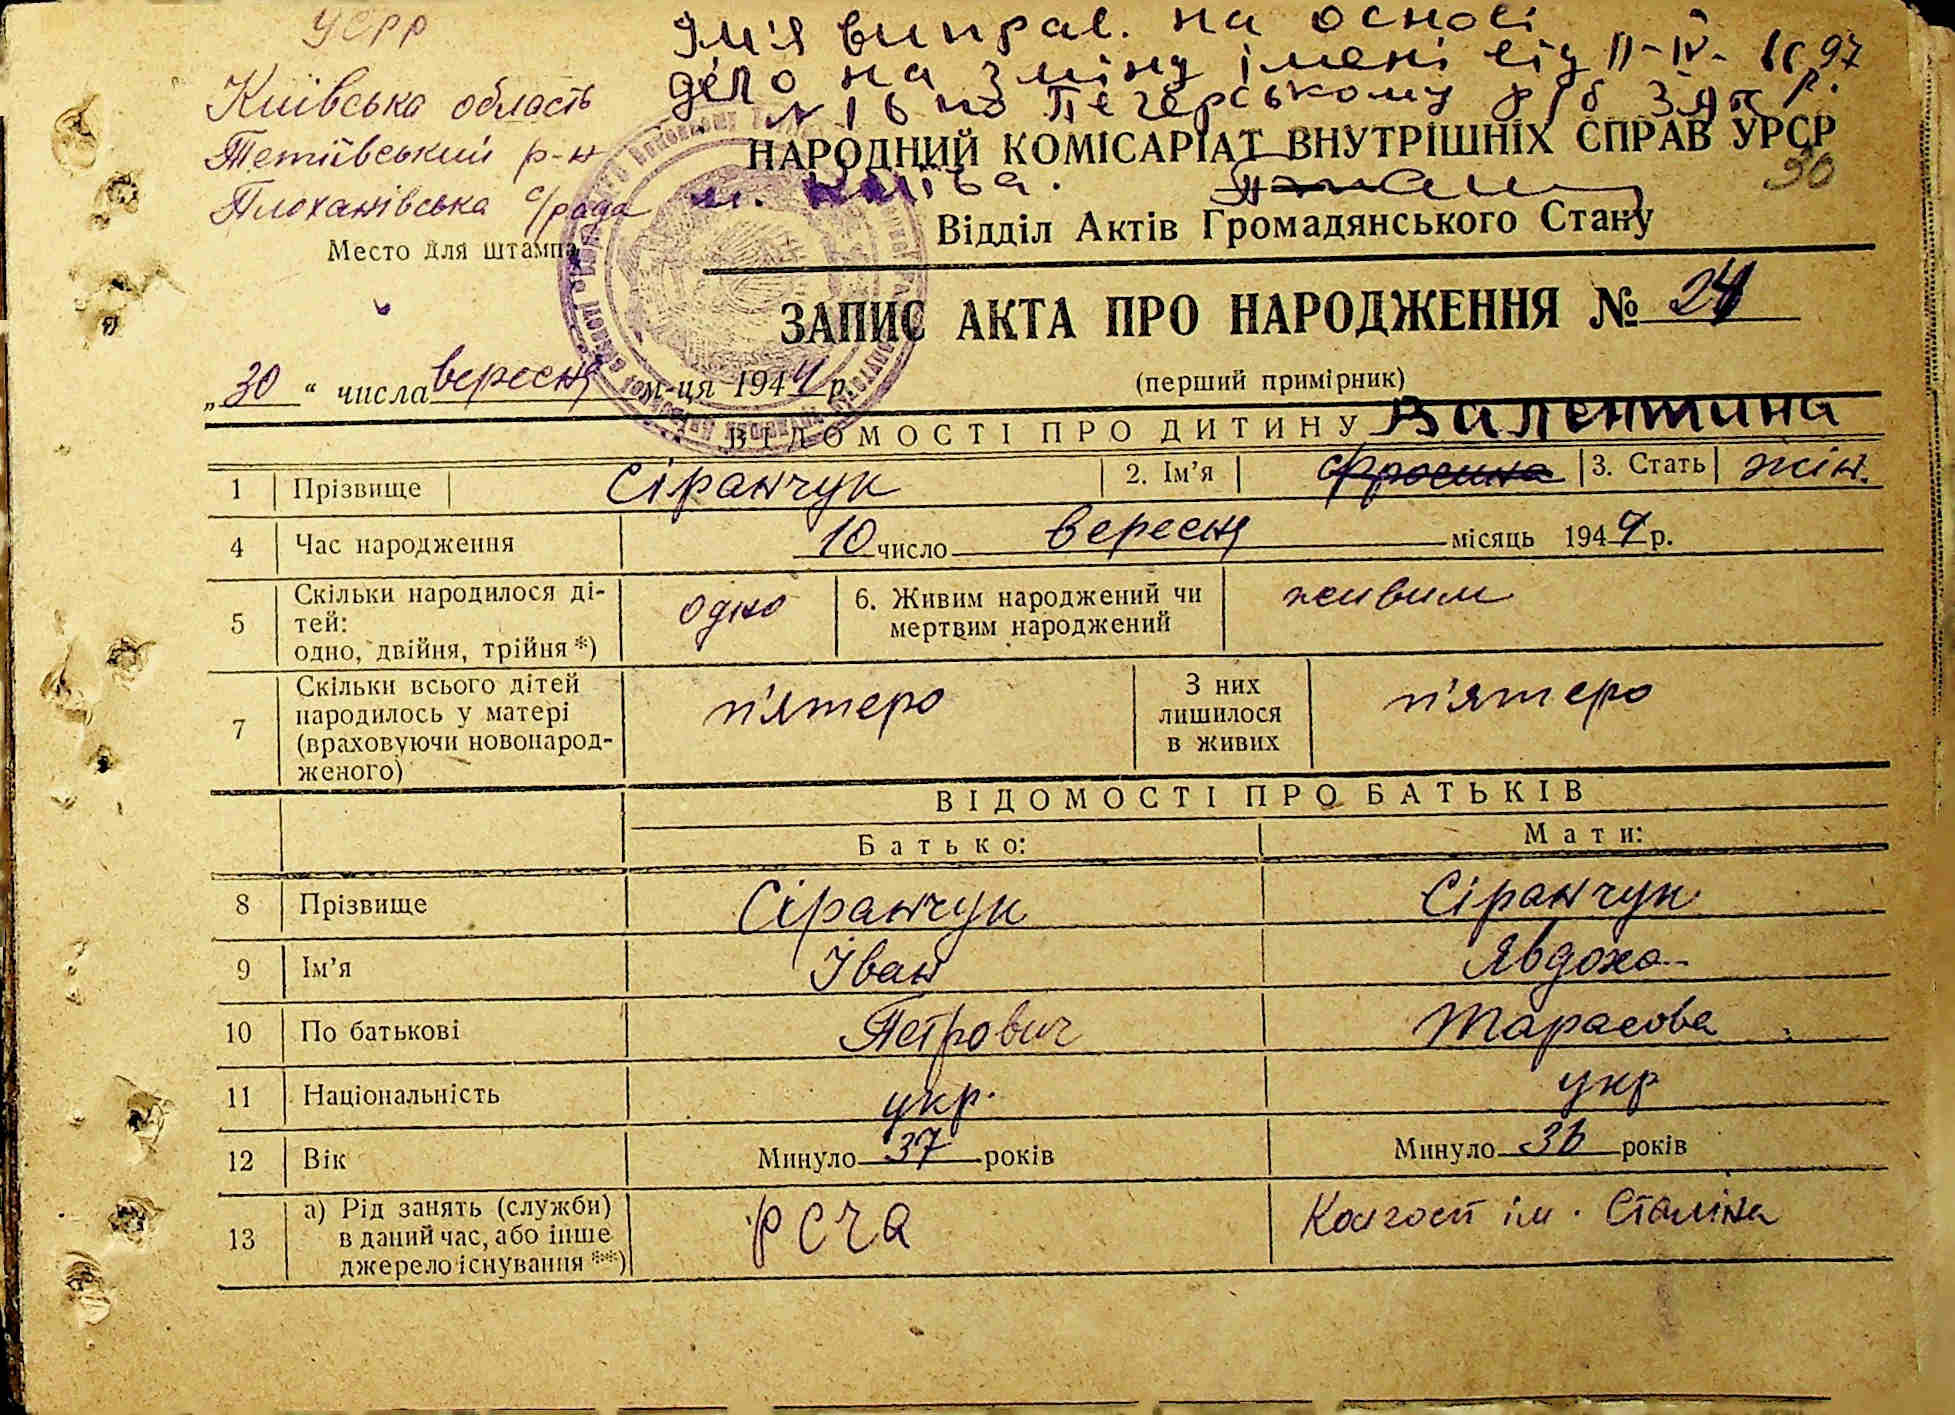 УСРР
Київська область
Тетіївський р-н
Плоханівська с/рада
Место для штампа
Ім'я виправ. на основі
діло на зміну імені від 11-IV-
по Печерському р
м. Києва.
НАРОДНИЙ КОМІСАРІАТ ВНУТРІШНІХ СПРАВ УРСР
30
Відділ Актів Громадянського Стану
ЗАПИС АКТА ПРО НАРОДЖЕННЯ № 24
„30“ числа вересня м-ця 1944 р.
(перший примірник)
ВІДОМОСТІ ПРО ДИТИНУ Валентина
1 Прізвище Сіранчук 2. Ім'я Фросина 3. Стать жін.
4 Час народження 10 число вересня місяць 1944 р.
5 Скільки народилося ді-
тей:
одно, двійня, трійня *) одно 6. Живим народжений чи
мертвим народжений живим
7 Скільки всього дітей
народилось у матері
(враховуючи новонарод-
женого) п'ятеро З них
лишилося
в живих п'ятеро
ВІДОМОСТІ ПРО БАТЬКІВ
Батько: Мати:
8 Прізвище Сіранчук Сіранчук
9 Ім'я Іван Явдоха
10 По батькові Петрович Тарасова
11 Національність укр. укр
12 Вік Минуло 37 років Минуло 36 років
13 а) Рід занять (служби)
в даний час, або інше
джерело існування **) РСЧА Колгосп ім. Сталіна